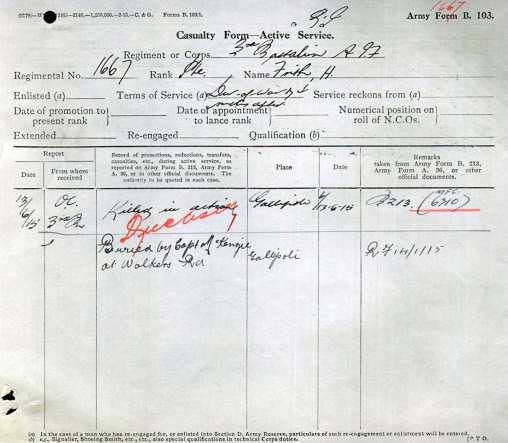 1667
Army Form B. 103.
Casualty Form—Active Service.
Regiment or Corps 3rd Battalion A I F
Regimental No. 1667 Rank Pte. Name Frith, H.
Enlisted (a) Terms of Service (a) Dur. of War & 4 mths after Service reckons from (a)
Date of promotion to present rank Date of appointment to lance rank Numerical position on roll of N.C.Os.
Extended Re-engaged Qualification (b)
Report
Date From whom received
Record of promotions, reductions, transfers, casualties, etc., during active service, as reported on Army Form B. 213, Army Form A. 36, or in other official documents. The authority to be quoted in each case.
Place
Date
Remarks
taken from Army Form B. 213, Army Form A. 36, or other official documents.
13/6/15 O.C. 3rd Bn Killed in action Gallipoli 13-6-15 B213.
Buried by Capt
at Walkers Gallipoli
(a) In the case of a man who has re-engaged for, or enlisted into Section D, Army Reserve, particulars of such re-engagement or enlistment will be entered.
(b) e.g., Signaller, Shoeing Smith, etc., etc., also special qualifications in technical Corps duties. [P.T.O.